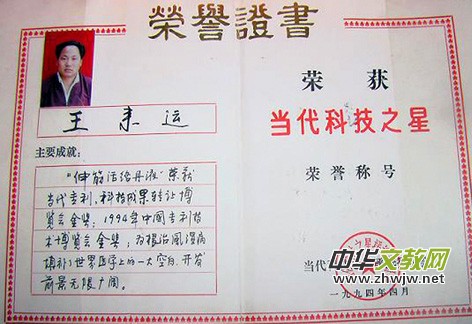 榮譽證書
王来运
主要成就：
"伸筋活络丹液"荣获
当代专利、科技成果转让博
览会金奖；1994年中国专利技
术博览会金奖；为根治风湿病
填补了世界医学上的一大空白，开发
前景无限广阔。
荣获
当代科技之星
荣誉称号
当代
一九九四年四月
中华文教网
www.zhwjw.net